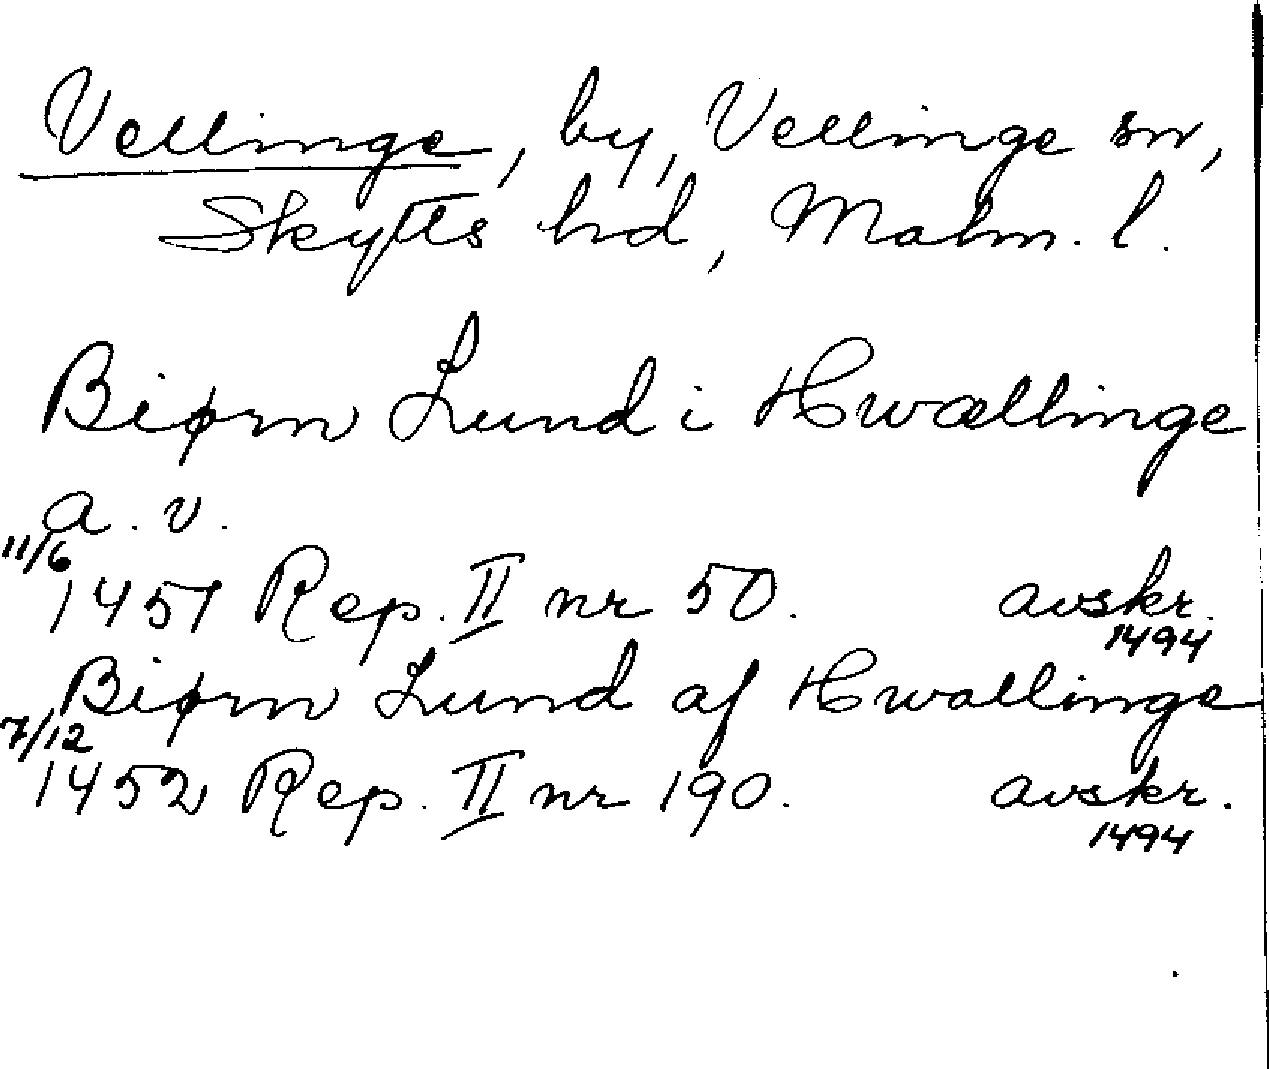 Vellinge, by, Vellinge sn,
Skytts hd, Malm. l.
Biørn Lund i Hwællinge
a. v.
11/6
1451 Rep. II nr 50. avskr.
1494
Biørn Lund af Hwallinge
7/12
1452 Rep. II nr 190. avskr.
1494